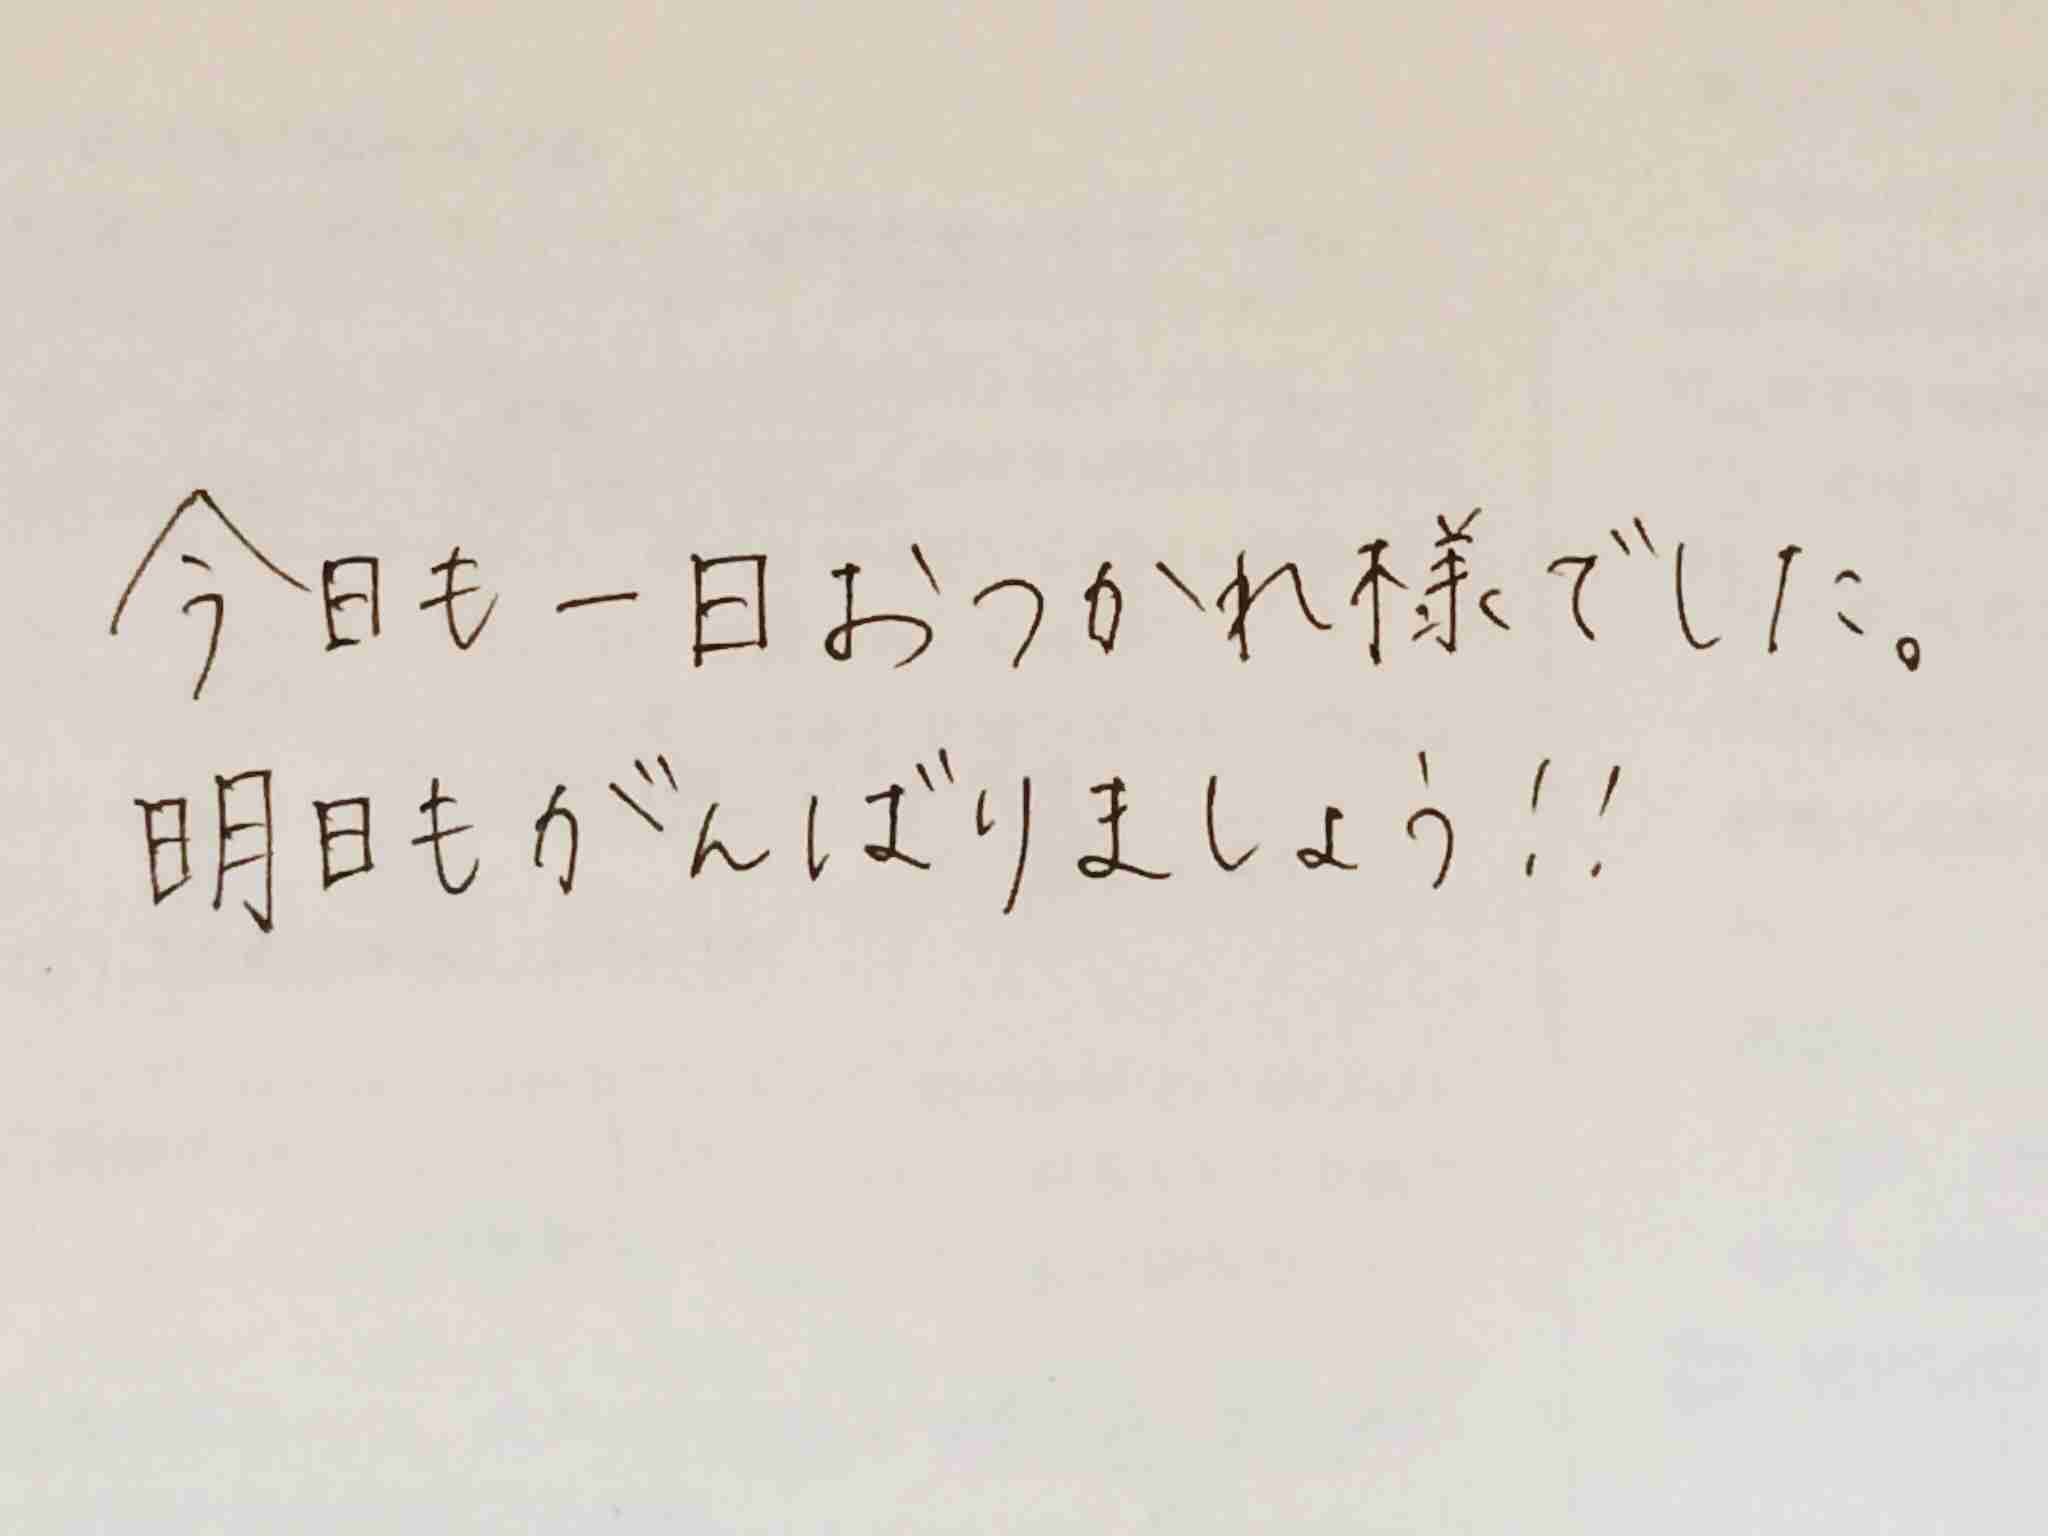 今日も一日おつかれ様でした。
明日もがんばりましょう!!